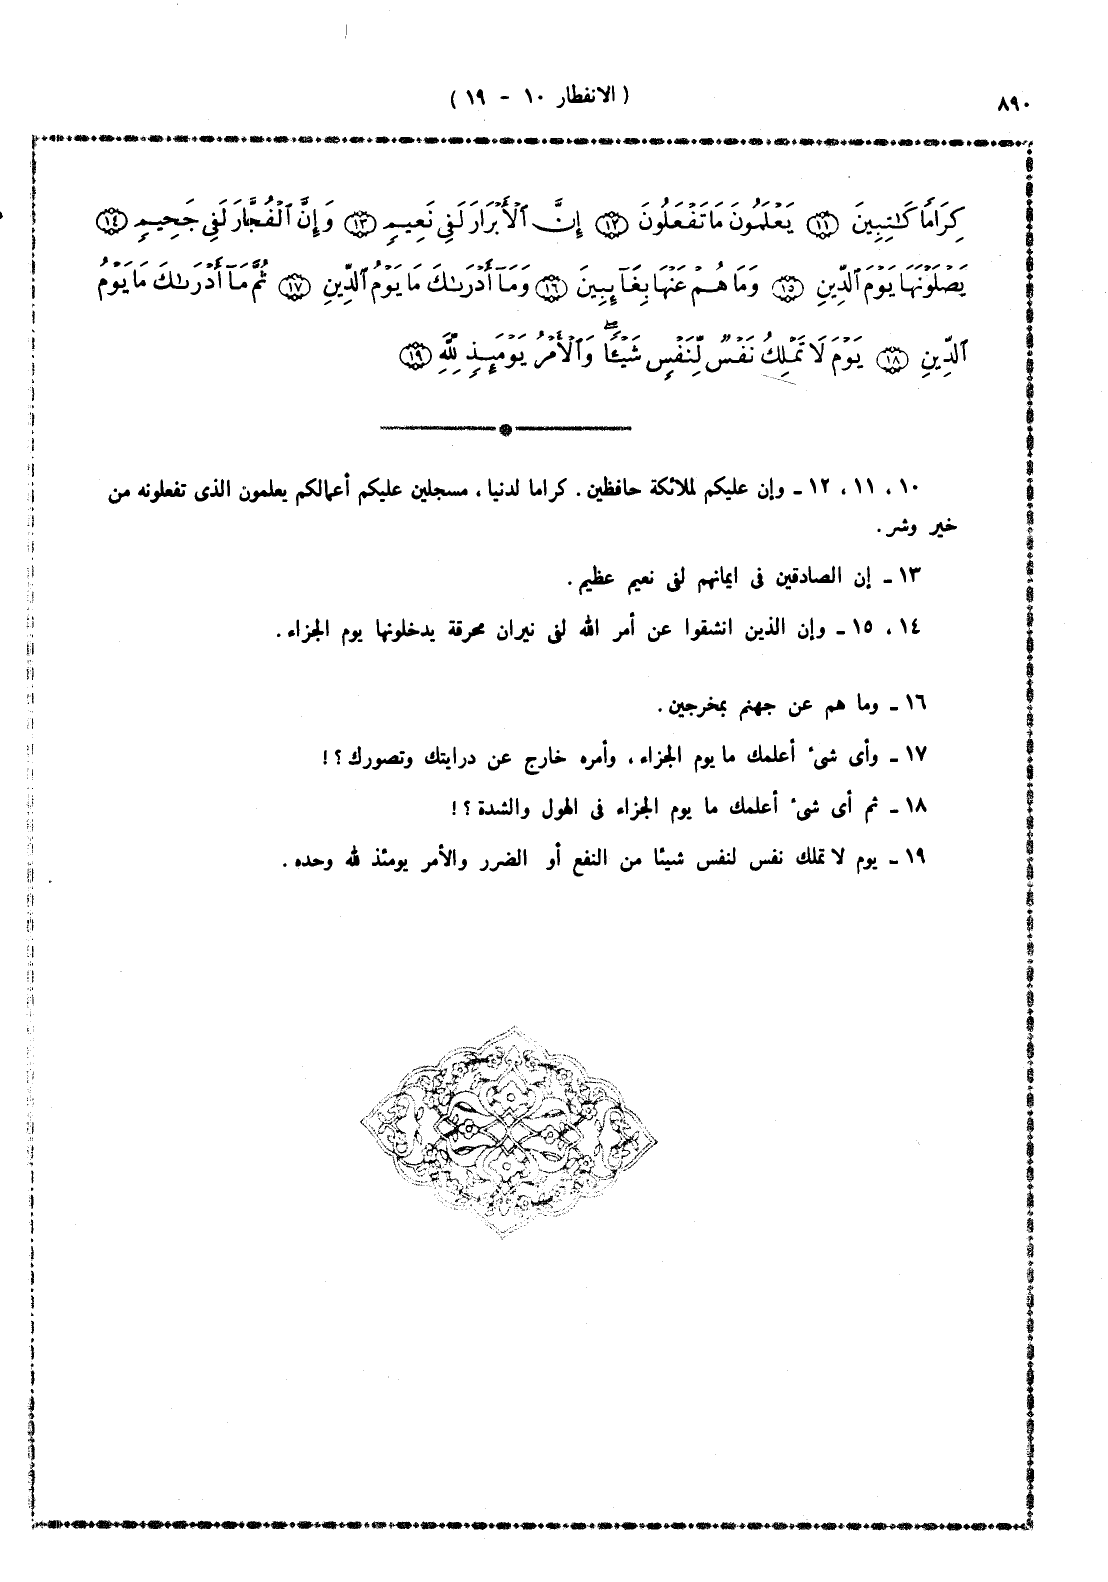 ٨٩٠
( الانفطار ١٠ - ١٩ )
كِرَامًا كَٰتِبِينَ ١١ يَعْلَمُونَ مَا تَفْعَلُونَ ١٢ إِنَّ ٱلْأَبْرَارَ لَفِي نَعِيمٍ ١٣ وَإِنَّ ٱلْفُجَّارَ لَفِي جَحِيمٍ ١٤
يَصْلَوْنَهَا يَوْمَ ٱلدِّينِ ١٥ وَمَا هُمْ عَنْهَا بِغَآئِبِينَ ١٦ وَمَآ أَدْرَىٰكَ مَا يَوْمُ ٱلدِّينِ ١٧ ثُمَّ مَآ أَدْرَىٰكَ مَا يَوْمُ
ٱلدِّينِ ١٨ يَوْمَ لَا تَمْلِكُ نَفْسٌ لِّنَفْسٍ شَيْـًٔا ۖ وَٱلْأَمْرُ يَوْمَئِذٍ لِّلَّهِ ١٩
١٠ ، ١١ ، ١٢ ـ وإن عليكم لملائكة حافظين . كراما لدنيا ، مسجلين عليكم أعمالكم يعلمون الذى تفعلونه من
خير وشر .
١٣ ـ إن الصادقين فى ايمانهم لفى نعيم عظيم .
١٤ ، ١٥ ـ وإن الذين انشقوا عن أمر الله لفى نيران محرقة يدخلونها يوم الجزاء .
١٦ ـ وما هم عن جهنم بمخرجين .
١٧ ـ وأى شىء أعلمك ما يوم الجزاء ، وأمره خارج عن درايتك وتصورك ؟ !
١٨ ـ ثم أى شىء أعلمك ما يوم الجزاء فى الهول والشدة ؟ !
١٩ ـ يوم لا تملك نفس لنفس شيئا من النفع أو الضرر والأمر يومئذ لله وحده .